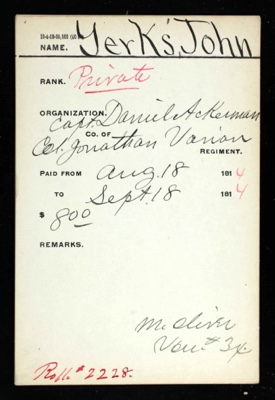 NAME. Yerk's, John
RANK. Private
ORGANIZATION. Capt. Daniel Ackerman
CO. OF
Col. Jonathan Varian
REGIMENT.
PAID FROM Aug. 18 1814
TO Sept. 18 1814
$ 8.00
REMARKS.
McOliver
Vou # 34
Roll # 2228.